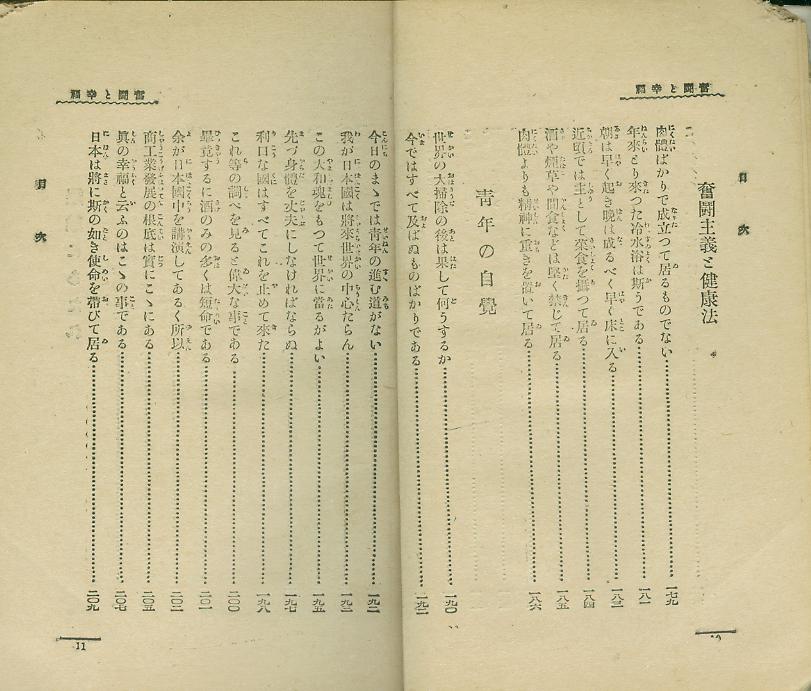 奮鬪と幸福
目次
奮鬪主義と健康法
肉體ばかりで成立つて居るものでない……一七九
年來とり來つた冷水浴は斯うである……一八一
朝は早く起き晩は成るべく早く床に入る……一八三
近頃では主として菜食を攝つて居る……一八四
酒や煙草や間食などは堅く禁じて居る……一八五
肉體よりも精神に重きを置いて居る……一八六
青年の自覺
世界の大掃除の後は果して何うするか……一九〇
今ではすべて及ばぬものばかりである……一九一
奮鬪と幸福
目次
今日のまゝでは青年の進む道がない……一九二
我が日本國は將來世界の中心たらん……一九三
この大和魂をもつて世界に當るがよい……一九五
先づ身體を丈夫にしなければならぬ……一九七
利口な國はすべてこれを止めて來た……一九八
これ等の調べを見ると偉大な事である……二〇〇
畢竟するに酒のみの多くは短命である……二〇一
余が日本國中を講演してあるく所以……二〇二
商工業發展の根底は實にこゝにある……二〇五
眞の幸福と云ふのはこゝの事である……二〇七
日本は將に斯の如き使命を帶びて居る……二〇九
11